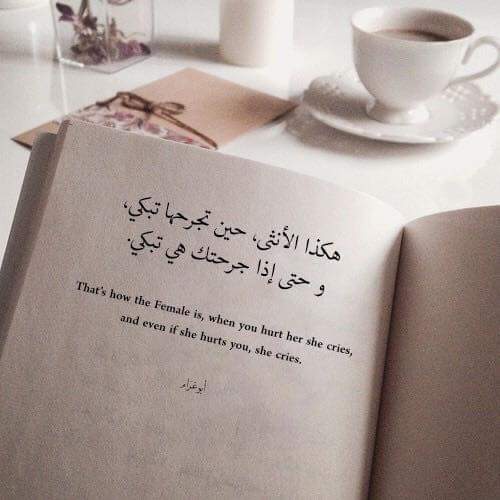 هكذا الأنثى، حين تجرحها تبكي،
و حتى إذا جرحتك هي تبكي.
That's how the Female is, when you hurt her she cries,
and even if she hurts you, she cries.
أبوعزام